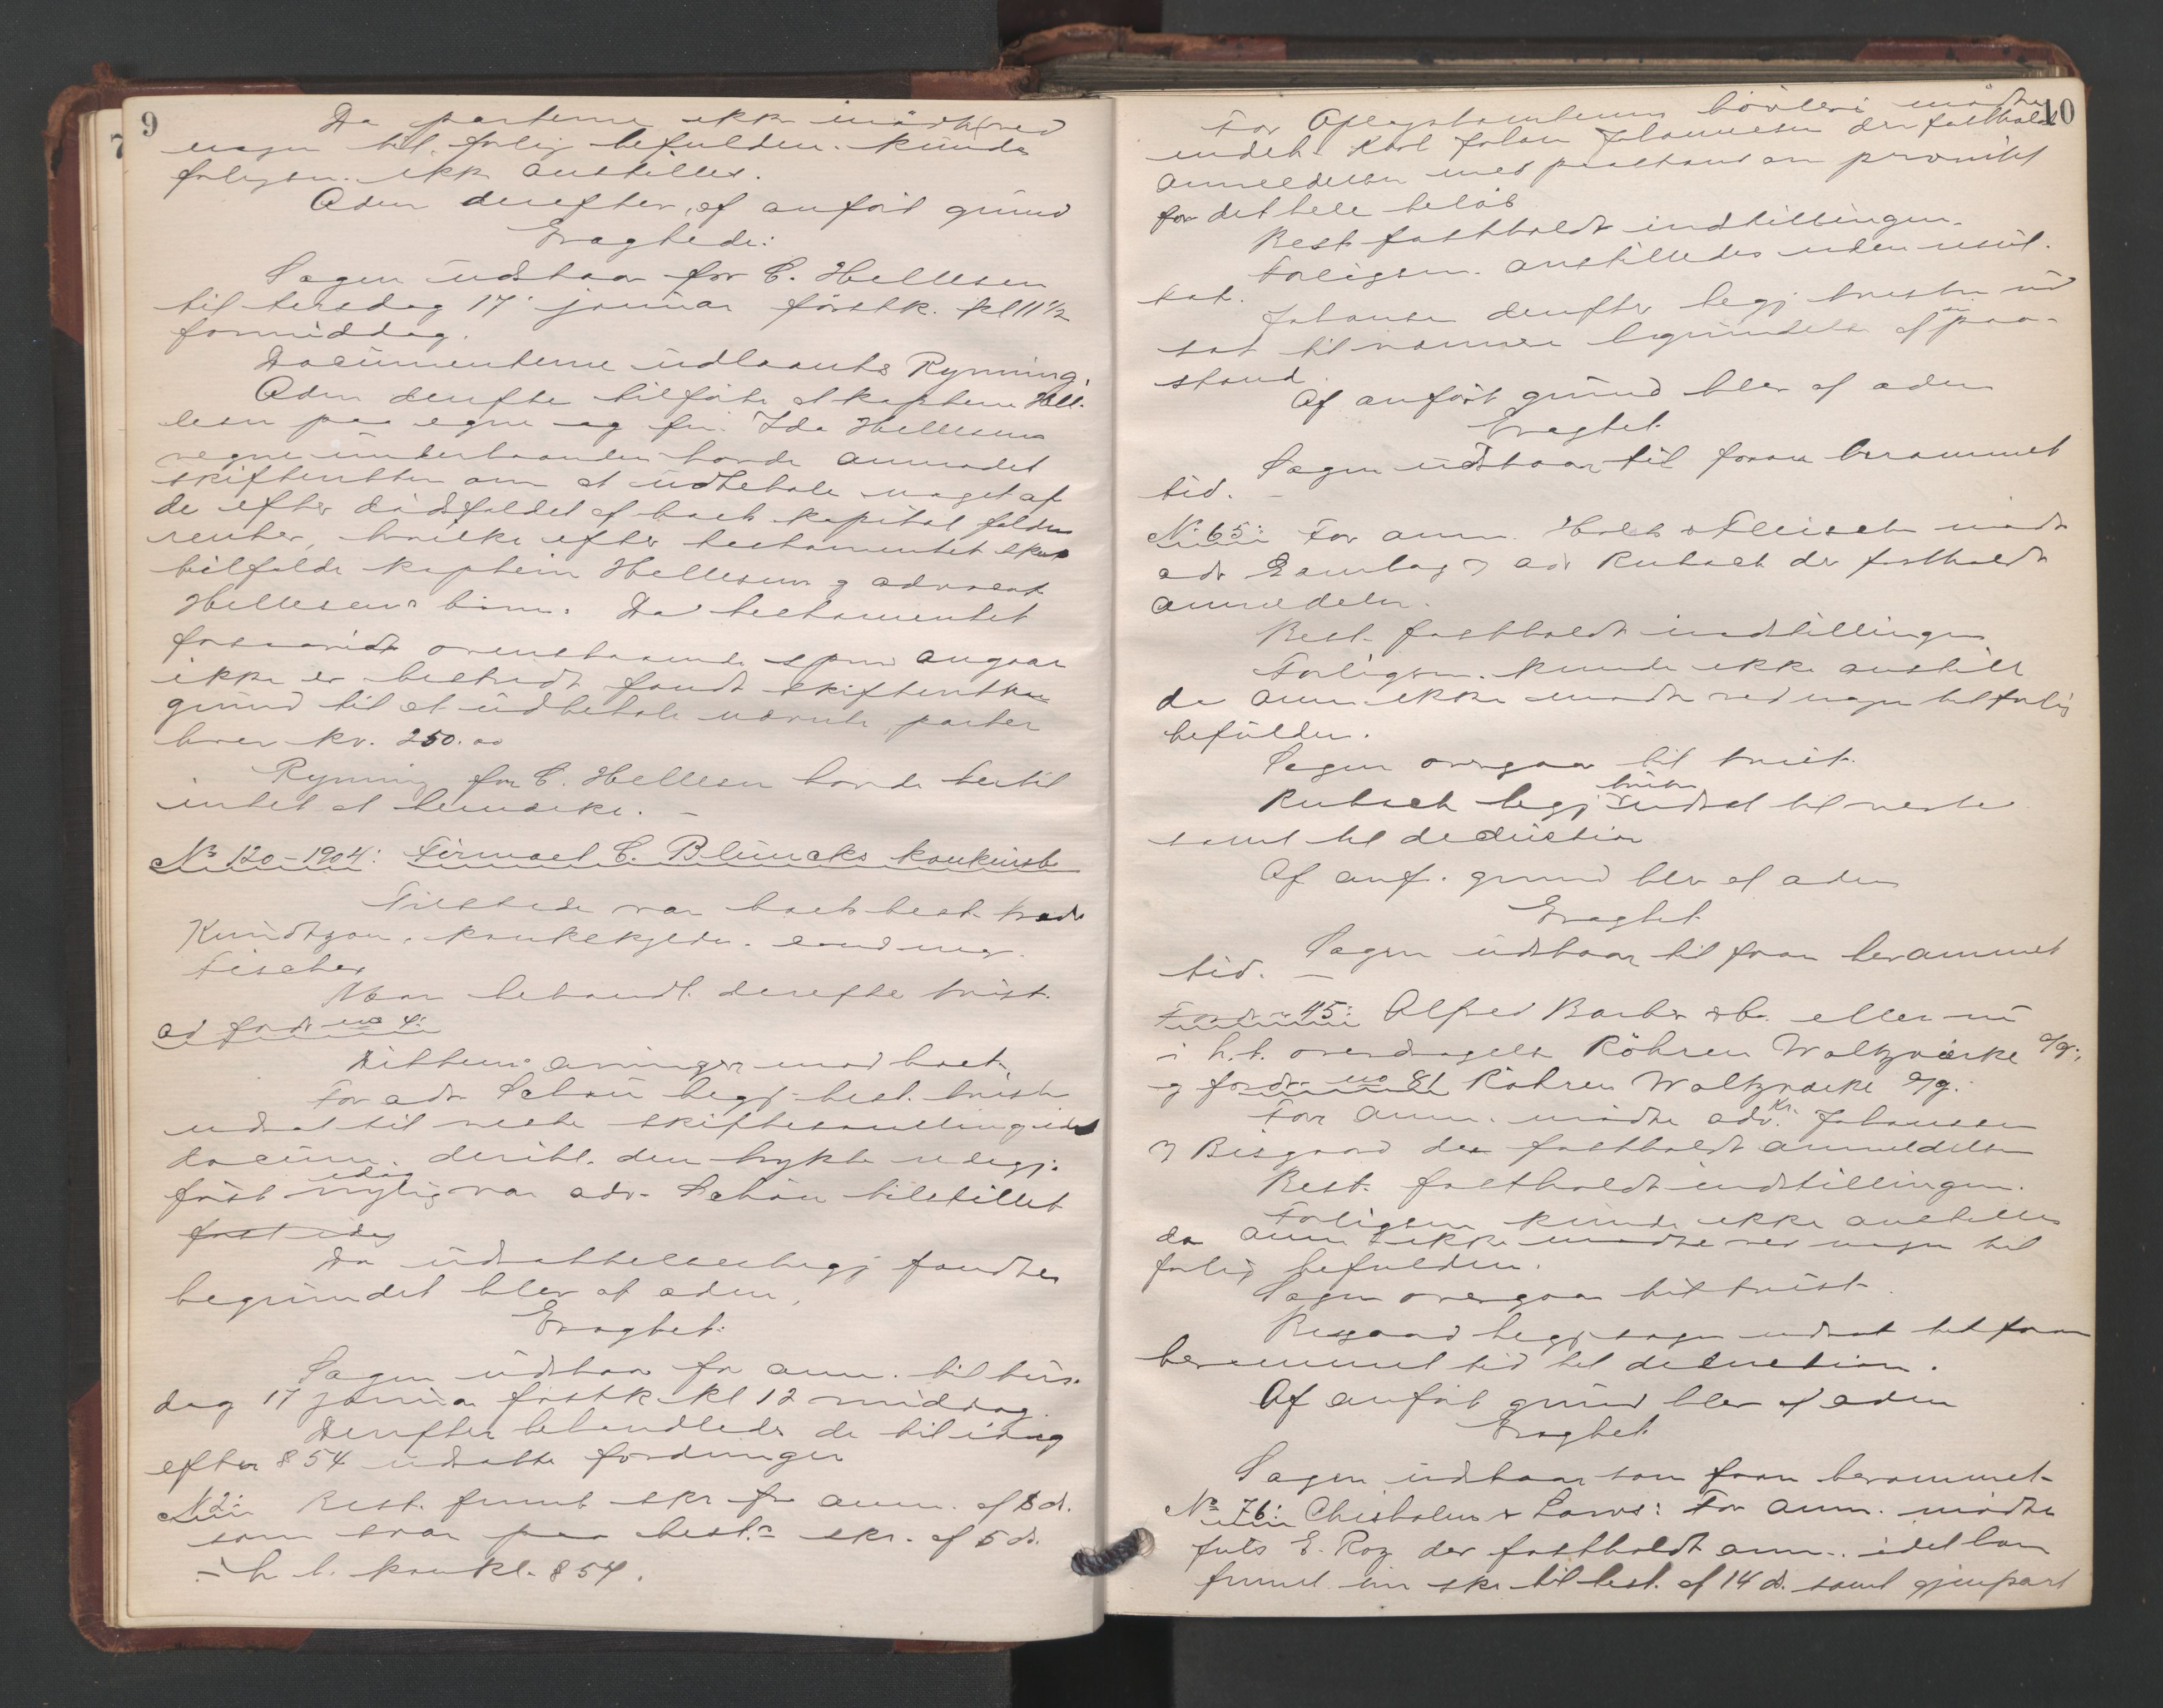 9
Da parterne ikke mödte med
nogen til forlig befulden. kunde
forligsm. ikke anstilles.
Adm derefter, af anfört grund
Eragtede:
Sagen udstaar for C. Hellesen
til tirsdag 17' januar förstk. kl 11 1/2
formiddag.
Documenterne udlaante Rynning.
Adm derefter tilförte at kaptein Hel-
lesen paa egne og fru Ida Hellesens
vegne underhaanden havde anmodet
skifteretten om at udbetale noget af
de efter dödsfaldet af boets kapital faldne
renter, hvilke efter testamentet skal
tilfalde kaptein Hellesen og advocat
Hellesens börn. Da testamentet
forsaavidt ovenstaaende spm angaar
ikke er bestridt fandt skifteretten
grund til at udbetale nævnte parter
hver kr. 250.00
Rynning for C. Hellesen havde hertil
intet at bemærke. –
No 120-1904: Firmaet C. Blüncks konkursbo
Tilstede var boets best.
Knudtzon,
Fischer
Man behandl. derefter tvist.
ad fordr no 4:
mod boet.
For adv. Schöu begj. best. tvisten
udsat til neste skiftesamling idet
docum. deribl. den trykte redegj.
förs nylig idag var adv. Schöu tilstillet
Da udsættelsesbegj fandtes
begrundet blev af adm.
Eragtet:
Sagen udstaar for anm. til tirs-
dag 17 januar förstk. kl 12 middag.
Derefter behandledes de til idag
efter 854 udsatte fordringer
No 2: Best. freml. skr. fra anm. af 8 ds.
som svar paa best.s skr. af 5 ds.
i h.t. konkl. 854.
10
For hövleri mödte
indeh. Karl Johan Johannesen der fastholdt
anmeldelsen med paastand om prioritet
for det hele belöb
Best. fastholdt indstillingen.
Forligsm. anstilledes uden resul-
tat.
Johansen derefter begj. tvisten ud
sat til nærmere begrundelse af paa-
stand.
Af anfört grund blev af adm
Eragtet
Sagen udstaar til foran berammet
tid. –
No 65: For anm. Holst & Fleischer mödte
adv. ad. Rubach der fastholdt
anmeldelsen.
Best. fastholdt indstillingen
Forligsm. kunde ikke anstilles
da anm ikke mödte ved nogen til forlig
befulden.
Sagen overgaar til tvist.
Rubach begj tvisten udsat til neste
saml til deduction
Af anf. grund blev af adm
Eragtet
Sagen udstaar til foran berammet
tid. –
Fordr no 45: Alfred Barber & Co. eller nu
i h.t. overdragelse Röhren Waltzværke A/G.,
og fordr no 81 Röhren Waltzværke A/G.
For anm. mödte adv. Kr. Johanssen
v Bisgaard der fastholdt anmeldelsen
Best. fastholdt indstillingen.
Forligsm kunde ikke anstilles
da anm ikke mödte ved nogen til
forlig befulden.
Sagen overgaar til tvist.
Bisgaard begj sagen udsat til foran
berammet tid til deduction.
Af anfört grund blev af adm
Eragtet
Sagen udstaar som foran berammet –
No 76: Chisholm & Laws: For anm. mödte
fuldm E. Roz der fastholdt anm. idet han
freml en skr til best. af 14 ds. samt gjenpart